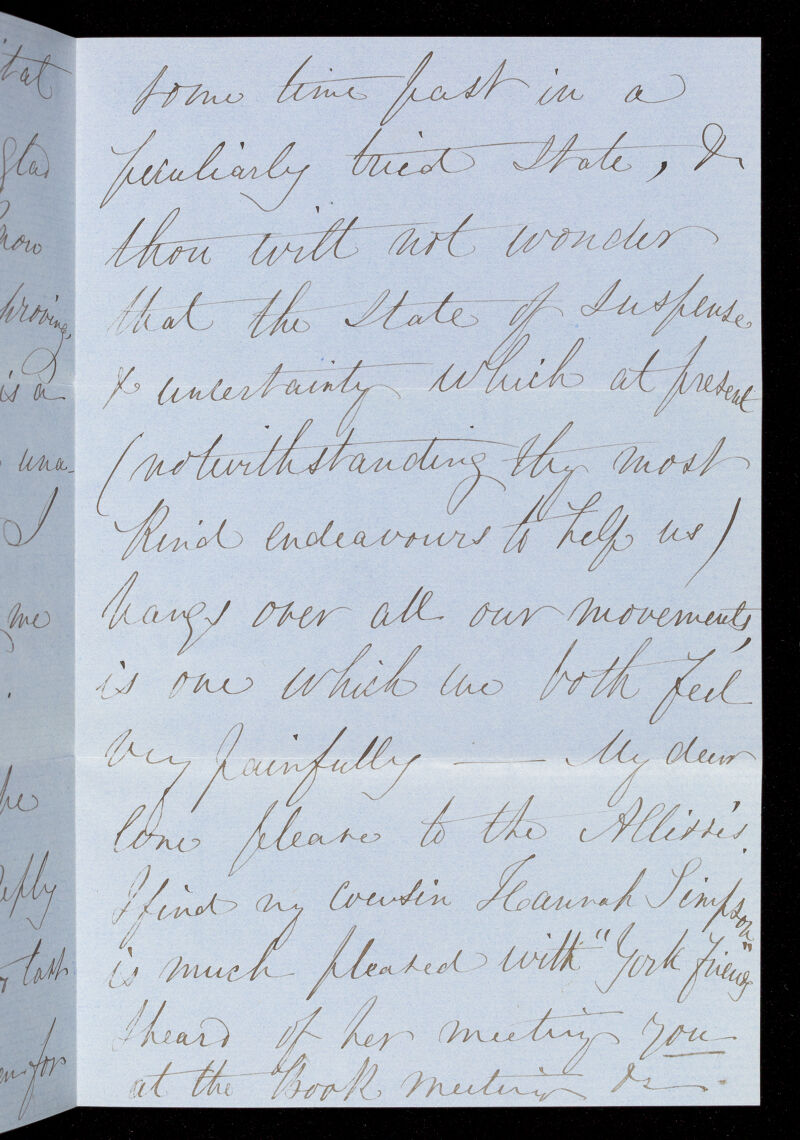 some time past in a
peculiarly tried state, &
thou wilt not wonder
that the state of suspense
& uncertainty which at present
(notwithstanding thy most
kind endeavours to help us)
hangs over all our movements,
is one which we both feel
very painfully — My dear
love please to the Allis's.
I find my cousin Hannah Simpson
is much pleased with "York friends"
I heard of her meeting you
at the Book meeting &c.
tal
glad
know
is a
una-
I
me
he
reply